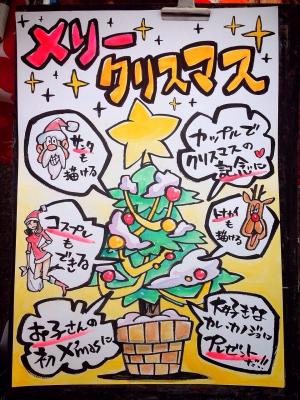 メリー
クリスマス
サンタ
も
描ける
カップルで
クリスマスの
記念に
コスプレ
も
できる
トナカイ
も
描ける
お子さんの
初X'masに
大好きな
カレ・カノジョに
プレゼント
だ!!